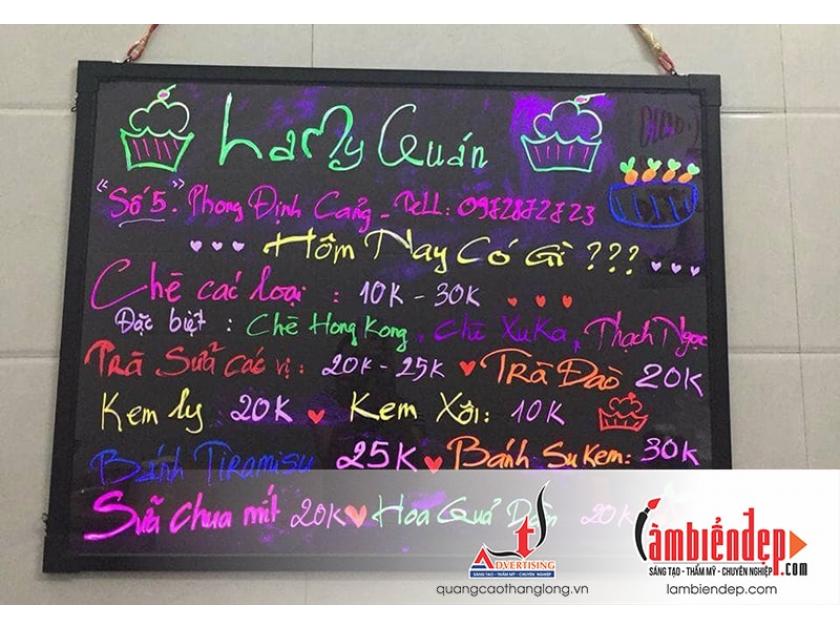 HaMy Quán
"Số 5". Phong Định Cảng - Tell: 0972872723
Hôm Nay Có Gì ???
Chè các loại : 10K - 30K
Đặc biệt : Chè Hong Kong, Chè XuKa, Thạch Ngọc
Trà Sữa các vị : 20K - 25K Trà Đào 20K
Kem ly 20K Kem Xôi: 10K
Bánh Tiramisu 25K Bánh Su Kem: 30K
Sữa chua mít 20K Hoa Quả Dầm 20K
ADVERTISING
SÁNG TẠO - THẨM MỸ - CHUYÊN NGHIỆP
quangcaothanglong.vn
Làmbiểnđẹp.com
SÁNG TẠO - THẨM MỸ - CHUYÊN NGHIỆP
lambiendep.com